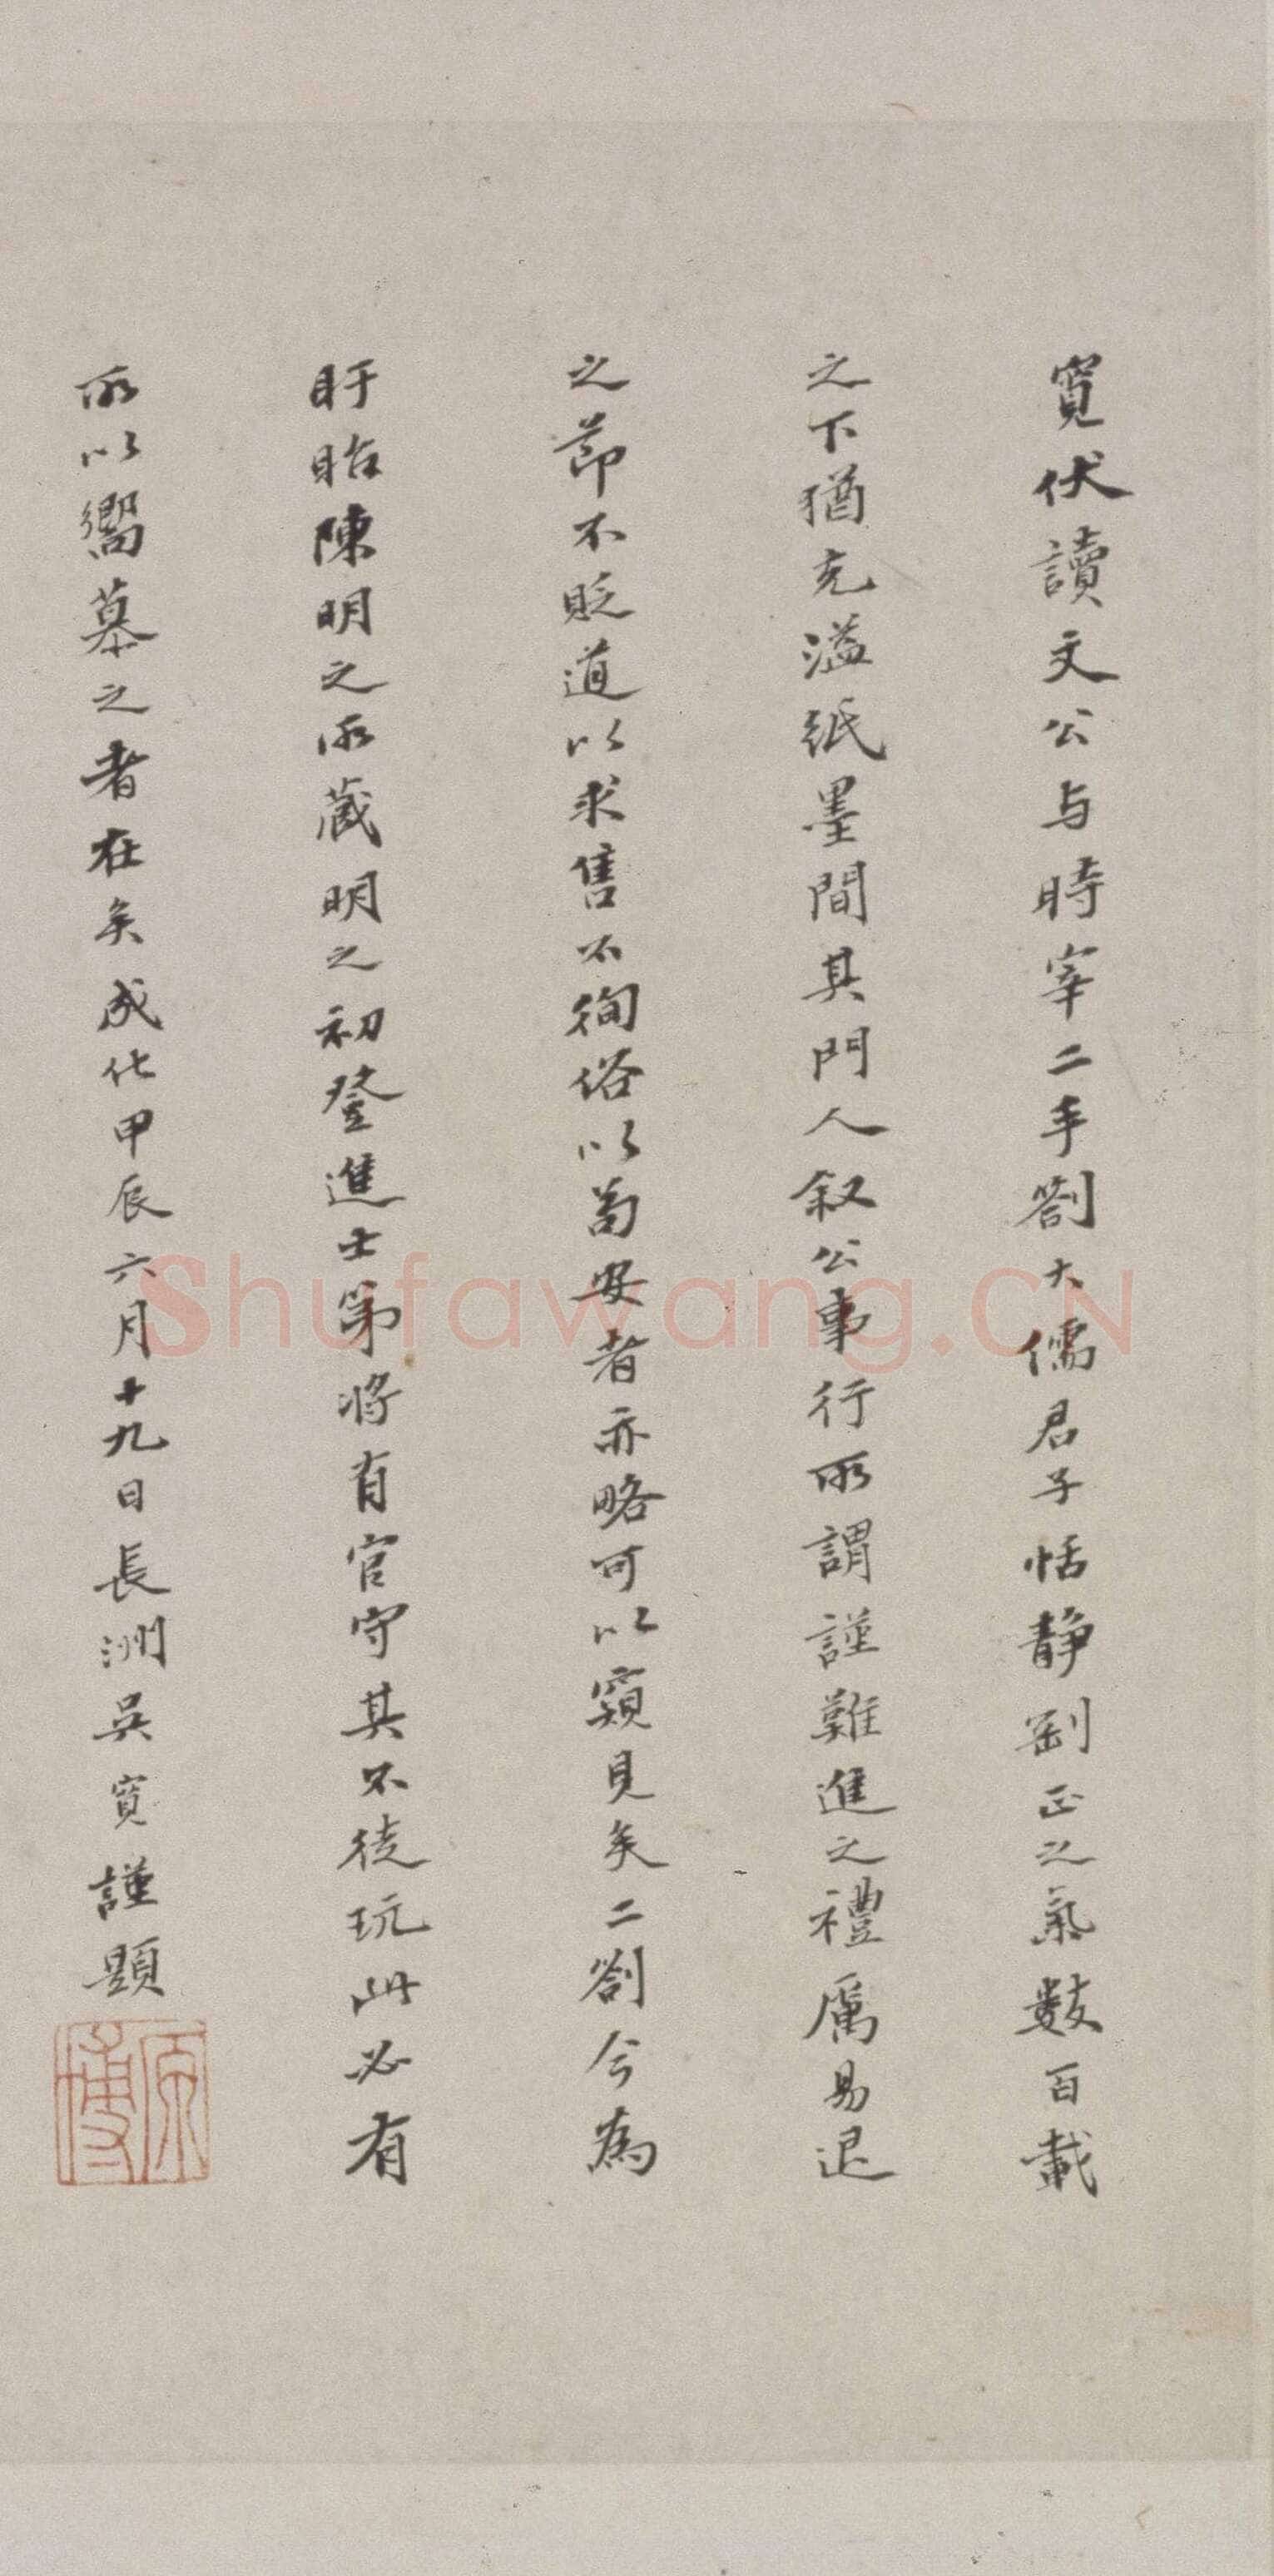 寬伏讀文公与時宰二手劄大儒君子恬静剛正之氣數百載
之下猶充溢紙墨間其門人叙公事行所謂謹難進之禮厲易退
之節不貶道以求售不徇俗以苟安者亦略可以窺見矣二劄今為
盱眙陳明之所藏明之初登進士第將有官守其不徒玩此必有
所以嚮慕之者在矣成化甲辰六月十九日長洲吳寬謹題
原博
Shufawang.CN